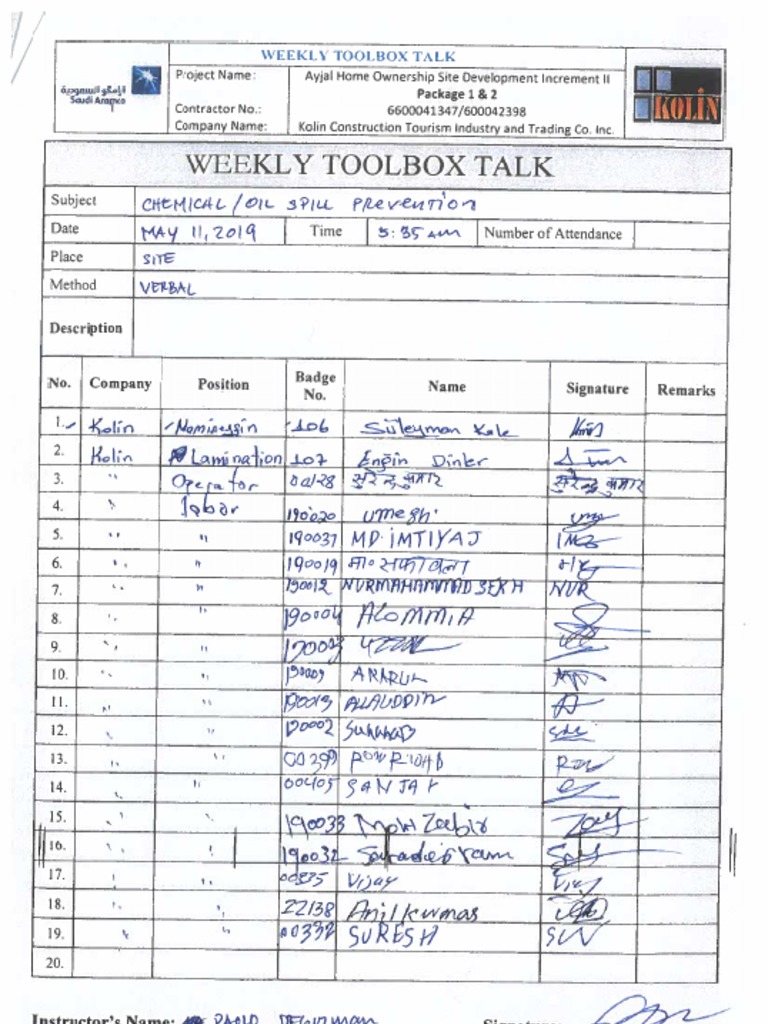 WEEKLY TOOLBOX TALK
أرامكو السعودية
Saudi Aramco
Project Name: Ayjal Home Ownership Site Development Increment II
Package 1 & 2
Contractor No.: 6600041347/600042398
Company Name: Kolin Construction Tourism Industry and Trading Co. Inc.
KOLİN
WEEKLY TOOLBOX TALK
Subject CHEMICAL / OIL SPILL PREVENTION
Date MAY 11, 2019 Time 5:35 AM Number of Attendance
Place SITE
Method VERBAL
Description
No. Company Position Badge No. Name Signature Remarks
1. Kolin 106 Süleyman Kale
2. Kolin Lamination 107 Engin Dinler
3. " Operator 00128 सुरेन्द्र कुमार सुरेन्द्र कुमार
4. Labor 190020 umesh
5. " " 190037 MD. IMTIYAJ IMZ
6. " " 190019
7. " " 190012 NURMAHAMMAD SEKH NUR
8. " " 190004 ALOMMIA
9. " "
10. " " 190009 ARARUL
11. " " 190013 ALAUDDIN
12. " " 190002
13. " " 00399
14. " " 00405 SANJAY
15. 190033 Mohd Zaabir
16. " " 190032
17. " " 00335 Vijay
18. " " 22138 Anil kumar
19. " " 00332 SURESH
20.
Instructor's Name: PAOLO Signature: